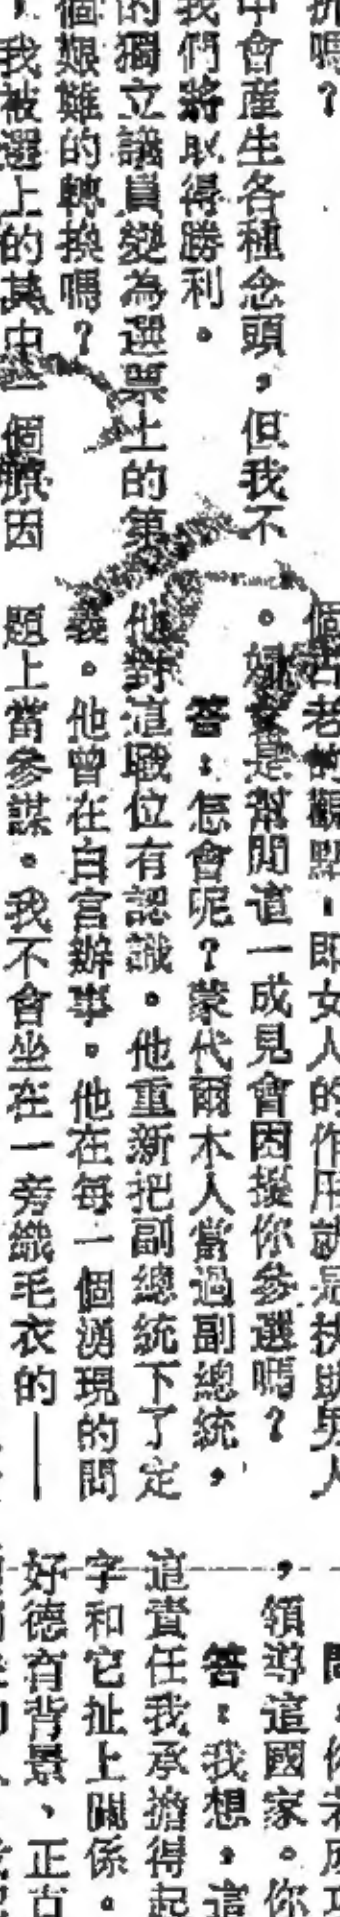 抗嗎？
中會產生各種念頭，但我不
我們將取得勝利。
的獨立議員變為選票上的第
個艱難的轉換嗎？
，我被選上的其中一個原因
個古老的觀點，即女人的作用就是扶助男人
。婦女是幫閒這一成見會因提你參選嗎？
答：怎會呢？蒙代爾本人當過副總統，
他對這職位有認識。他重新把副總統下了定
義。他曾在白宮辦事。他在每一個湧現的問
題上當參謀。我不會坐在一旁織毛衣的——
問：你若成功
，領導這國家。你
答：我想，這
這責任我承擔得起
字和它扯上關係。
好德育背景、正古